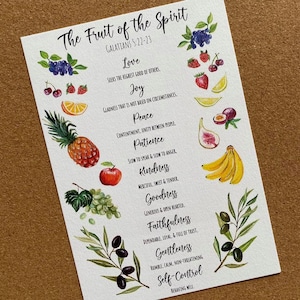 The Fruit of the Spirit
GALATIANS 5:22-23
Love
SEEKS THE HIGHEST GOOD OF OTHERS.
Joy
GLADNESS THAT IS NOT BASED ON CIRCUMSTANCES.
Peace
CONTENTMENT, UNITY BETWEEN PEOPLE.
Patience
SLOW TO SPEAK & SLOW TO ANGER.
Kindness
MERCIFUL, SWEET & TENDER.
Goodness
GENEROUS & OPEN HEARTED.
Faithfulness
DEPENDABLE, LOYAL, & FULL OF TRUST.
Gentleness
HUMBLE, CALM, NON-THREATENING.
Self-Control
BEHAVING WELL.